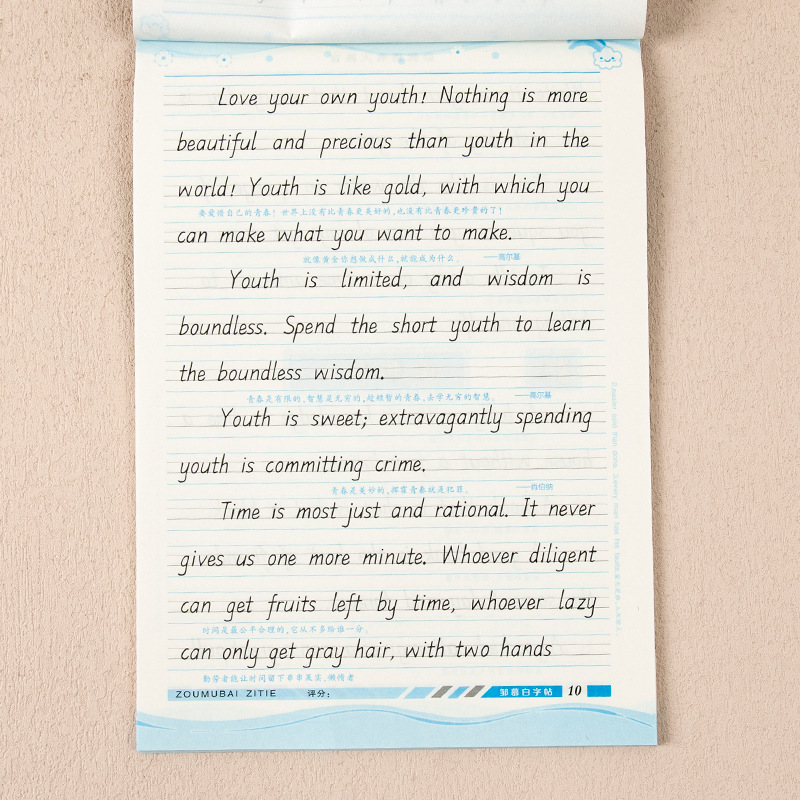 Love your own youth! Nothing is more
beautiful and precious than youth in the
world! Youth is like gold, with which you
要爱惜自己的青春！世界上没有比青春更美好的，也没有比青春更珍贵的了！
can make what you want to make.
就像黄金你想做成什么，就能成为什么。 ——高尔基
Youth is limited, and wisdom is
boundless. Spend the short youth to learn
the boundless wisdom.
青春是有限的，智慧是无穷的，趁短暂的青春，去学无穷的智慧。 ——高尔基
Youth is sweet; extravagantly spending
youth is committing crime.
青春是美妙的，挥霍青春就是犯罪。 ——肖伯纳
Time is most just and rational. It never
gives us one more minute. Whoever diligent
can get fruits left by time, whoever lazy
时间是最公平合理的，它从不多给谁一分。
can only get gray hair, with two hands
勤劳者能让时间留下串串果实，懒惰者
ZOUMUBAI ZITIE 评分： 邹慕白字帖 10